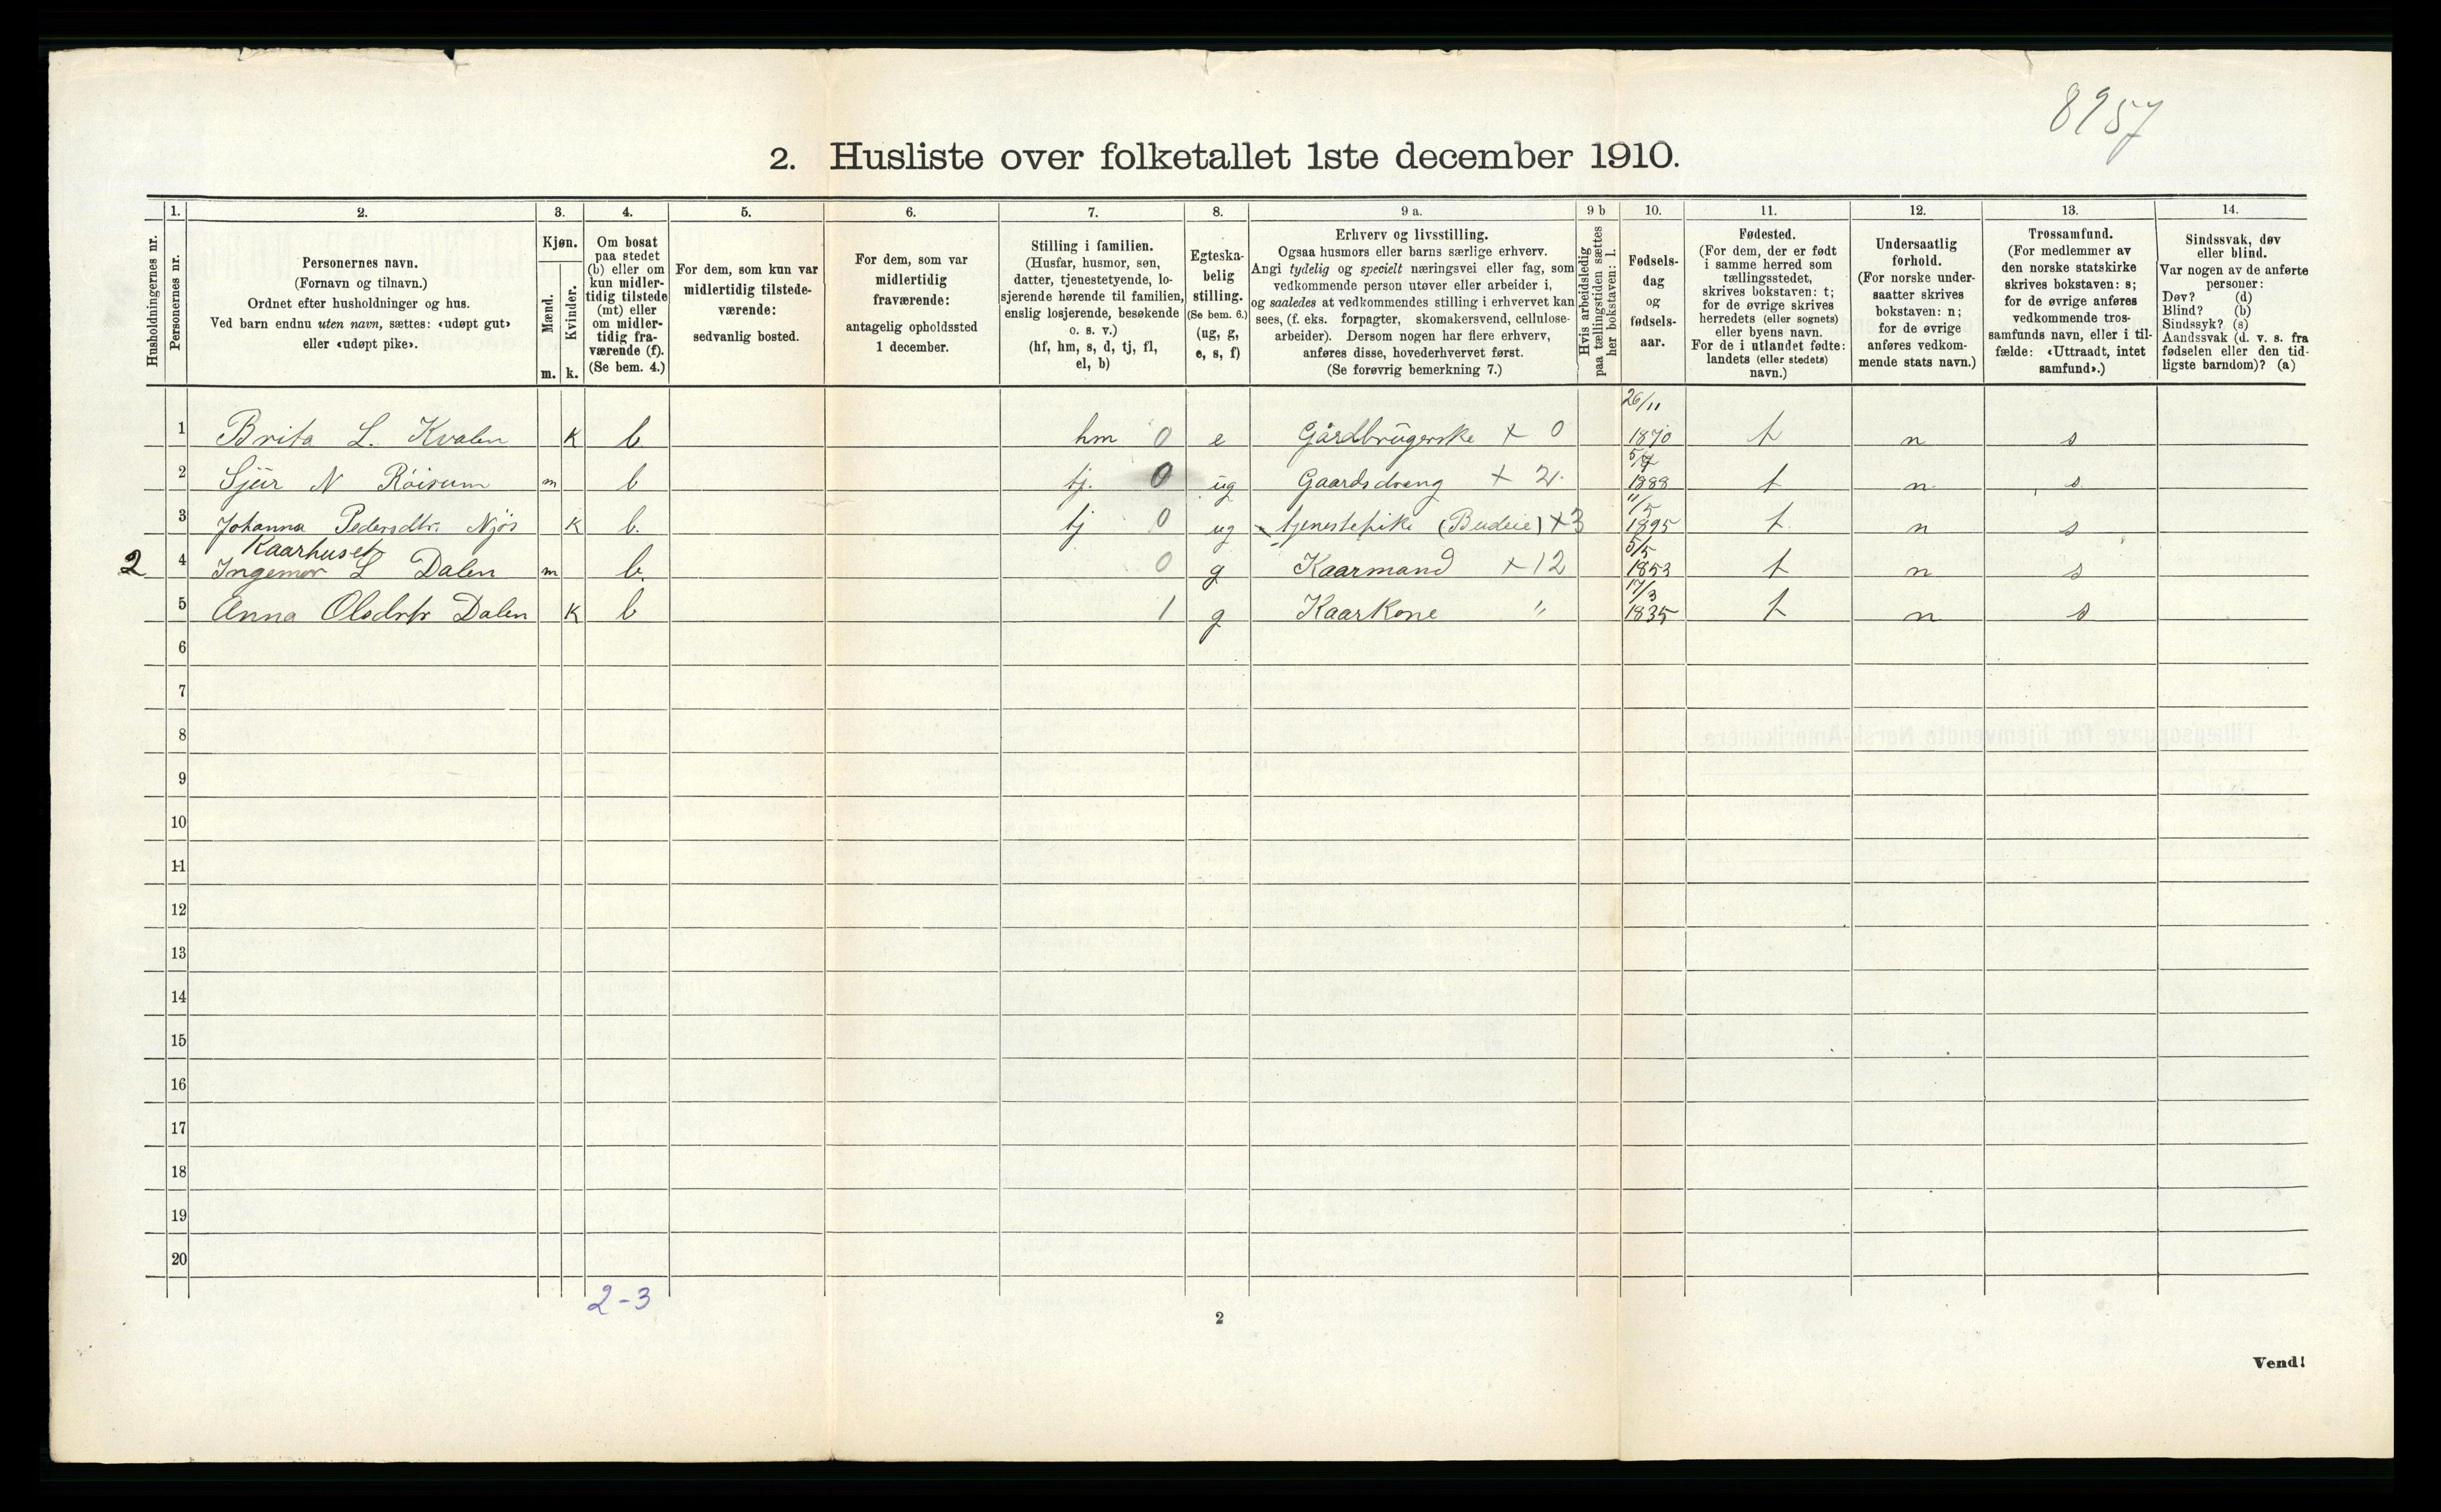 8957
2. Husliste over folketallet 1ste december 1910.
1. 2. 3. 4. 5. 6. 7. 8. 9 a. 9 b 10. 11. 12. 13. 14.
Husholdningernes nr.
Personernes nr.
Personernes navn.
(Fornavn og tilnavn.)
Ordnet efter husholdninger og hus.
Ved barn endnu uten navn, sættes: «udøpt gut»
eller «udøpt pike».
Kjøn.
Mænd.
Kvinder.
m. k.
Om bosat
paa stedet
(b) eller om
kun midler-
tidig tilstede
(mt) eller
om midler-
tidig fra-
værende (f).
(Se bem. 4.)
For dem, som kun var
midlertidig tilstede-
værende:
sedvanlig bosted.
For dem, som var
midlertidig
fraværende:
antagelig opholdssted
1 december.
Stilling i familien.
(Husfar, husmor, søn,
datter, tjenestetyende, lo-
sjerende hørende til familien,
enslig losjerende, besøkende
o. s. v.)
(hf, hm, s, d, tj, fl,
el, b)
Egteska-
belig
stilling.
(Se bem. 6.)
(ug, g,
e, s, f)
Erhverv og livsstilling.
Ogsaa husmors eller barns særlige erhverv.
Angi tydelig og specielt næringsvei eller fag, som
vedkommende person utøver eller arbeider i,
og saaledes at vedkommendes stilling i erhvervet kan
sees, (f. eks. forpagter, skomakersvend, cellulose-
arbeider). Dersom nogen har flere erhverv,
anføres disse, hovederhvervet først.
(Se forøvrig bemerkning 7.)
Hvis arbeidsledig
paa tællingstiden sættes
her bokstaven: l.
Fødsels-
dag
og
fødsels-
aar.
Fødested.
(For dem, der er født
i samme herred som
tællingsstedet,
skrives bokstaven: t;
for de øvrige skrives
herredets (eller sognets)
eller byens navn.
For de i utlandet fødte:
landets (eller stedets)
navn.)
Undersaatlig
forhold.
(For norske under-
saatter skrives
bokstaven: n;
for de øvrige
anføres vedkom-
mende stats navn.)
Trossamfund.
(For medlemmer av
den norske statskirke
skrives bokstaven: s;
for de øvrige anføres
vedkommende tros-
samfunds navn, eller i til-
fælde: «Uttraadt, intet
samfund».)
Sindssvak, døv
eller blind.
Var nogen av de anførte
personer:
Døv? (d)
Blind? (b)
Sindssyk? (s)
Aandssvak (d. v. s. fra
fødselen eller den tid-
ligste barndom)? (a)
26/11
1 Brita L. Kvalen K b hm 0 e Gårdbrugerske + 0 1870 t n s
5/7
2 Sjur N Röisum m b tj. 0 ug Gaardsdreng + 2. 1888 t n s
11/5
3 Johanna Pedersdtr. Njøs K b. tj 0 ug tjenestepike (Budeie) + 3 1895 t n s
Kaarhuset 5/5
2 4 Ingemar L Dalen m b. 0 g Kaarmand + 12 1853 t n s
17/3
5 Anna Olsdtr Dalen K b 1 g Kaarkone " 1835 t n s
6
7
8
9
10
11
12
13
14
15
16
17
18
19
20
2-3
2
Vend!